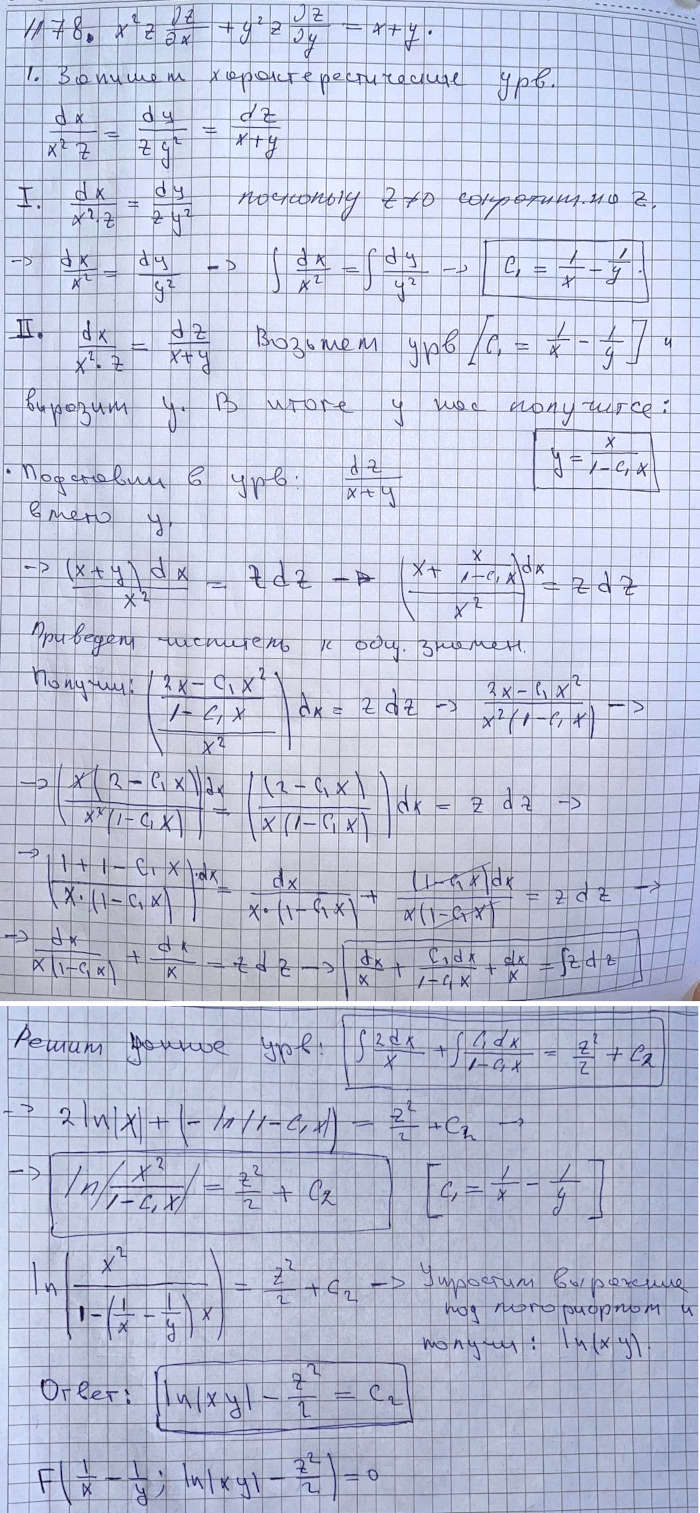 1178. x²z ∂z/∂x + y²z ∂z/∂y = x+y.
1. Запишем характерестические урв.
dx/(x² z) = dy/(z y²) = dz/(x+y)
I. dx/(x²·z) = dy/(z y²) поскольку z≠0 сократим на z.
→ dx/x² = dy/y² → ∫ dx/x² = ∫ dy/y² → C₁ = 1/x − 1/y.
II. dx/(x²·z) = dz/(x+y) Возьмем урв [C₁ = 1/x − 1/y] и
вырозит y. В итоге у нас получитсе:
y = x/(1−C₁x)
• Подставим в урв: dz/(x+y)
вместо y.
→ (x+y) dx/x² = z dz → ((x + x/(1−C₁x))/x²) dx = z dz
Приведем числитель к общ. знамен.
Получим: (((2x−C₁x²)/(1−C₁x))/x²) dx = z dz → (2x−C₁x²)/(x²(1−C₁x)) →
→ (x(2−C₁x)/(x²(1−C₁x))) dx = ((2−C₁x)/(x(1−C₁x))) dx = z dz →
→ ((1+1−C₁x)/(x·(1−C₁x)))·dx = dx/(x·(1−C₁x)) + (1−C₁x)dx/(x(1−C₁x)) = z dz →
→ dx/(x(1−C₁x)) + dx/x = z dz → ∫ dx/x + C₁dx/(1−C₁x) + dx/x = ∫z dz
Решим данное урв: ∫ 2dx/x + ∫ C₁dx/(1−C₁x) = z²/2 + C₂
→ 2 ln|x| + (−ln|1−C₁x|) = z²/2 + C₂ →
→ ln|x²/(1−C₁x)| = z²/2 + C₂ [C₁ = 1/x − 1/y]
ln(x²/(1−(1/x − 1/y)x)) = z²/2 + C₂ → Упростим выражение
под логориφмом и
получи: ln(xy).
Ответ: ln|xy| − z²/2 = C₂
F(1/x − 1/y; ln|xy| − z²/2) = 0